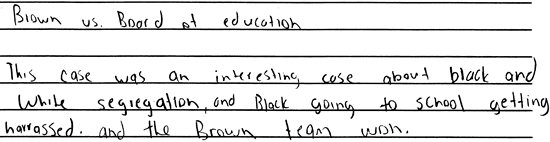 Brown vs. Board of education
This case was an interesting case about black and
White segregation, and Black going to school getting
harrassed. and the Brown team won.